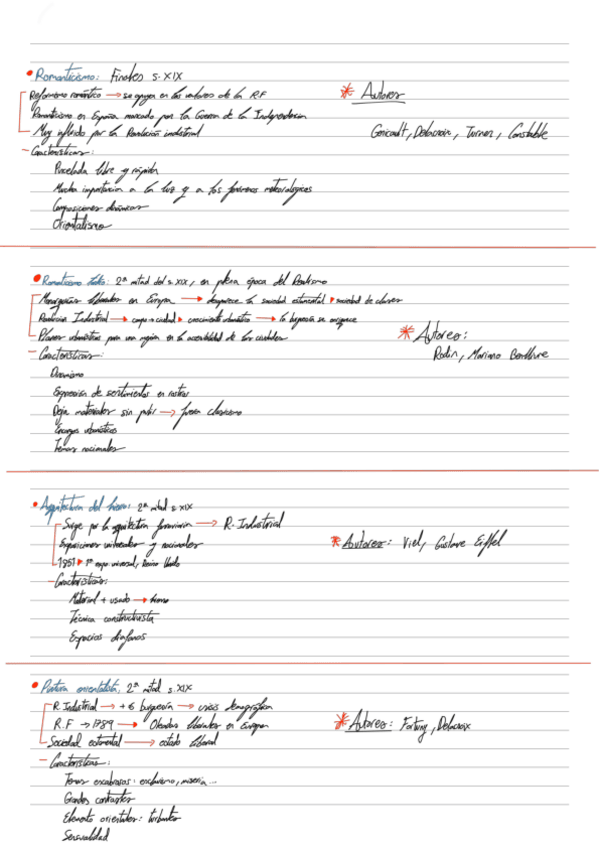 • Romanticismo: Finales s. XIX
Reformismo romántico → se apoya en los valores de la R.F
* Autores
Romanticismo en España marcado por la Guerra de la Independencia
Muy influido por la Revolución industrial
Gericault, Delacroix, Turner, Constable
- Características:
Pincelada libre y rápida
Mucha importancia a la luz y a los fenómenos meteorológicos
Composiciones dinámicas
Orientalismo
• Romanticismo tardío: 2ª mitad del s. XIX, en plena época del Realismo
Monarquías liberales en Europa → desaparece la sociedad estamental → sociedad de clases
Revolución Industrial → campo → ciudad → crecimiento urbanístico → la burguesía se enriquece
Planes urbanísticos para una mejora en la accesibilidad de las ciudades
* Autores:
- Características:
Rodin, Mariano Benlliure
Dinamismo
Expresión de sentimientos en rostros
Deja materiales sin pulir → fuera clasicismo
Encargos urbanísticos
Temas nacionales
• Arquitectura del hierro: 2ª mitad s. XIX
Surge por la arquitectura ferroviaria → R. Industrial
Exposiciones universales y nacionales
* Autores: Viel, Gustave Eiffel
1851 → 1ª expo universal, Reino Unido
- Características:
Material + usado → hierro
Técnica constructivista
Espacios diáfanos
• Pintura orientalista: 2ª mitad s. XIX
R. Industrial → + burguesía → crisis demográfica
R.F → 1789 → Oleadas liberales en Europa
* Autores: Fortuny, Delacroix
Sociedad estamental → estado liberal
- Características:
Temas escabrosos: esclavismo, miseria...
Grandes contrastes
Elementos orientales: turbantes
Sensualidad